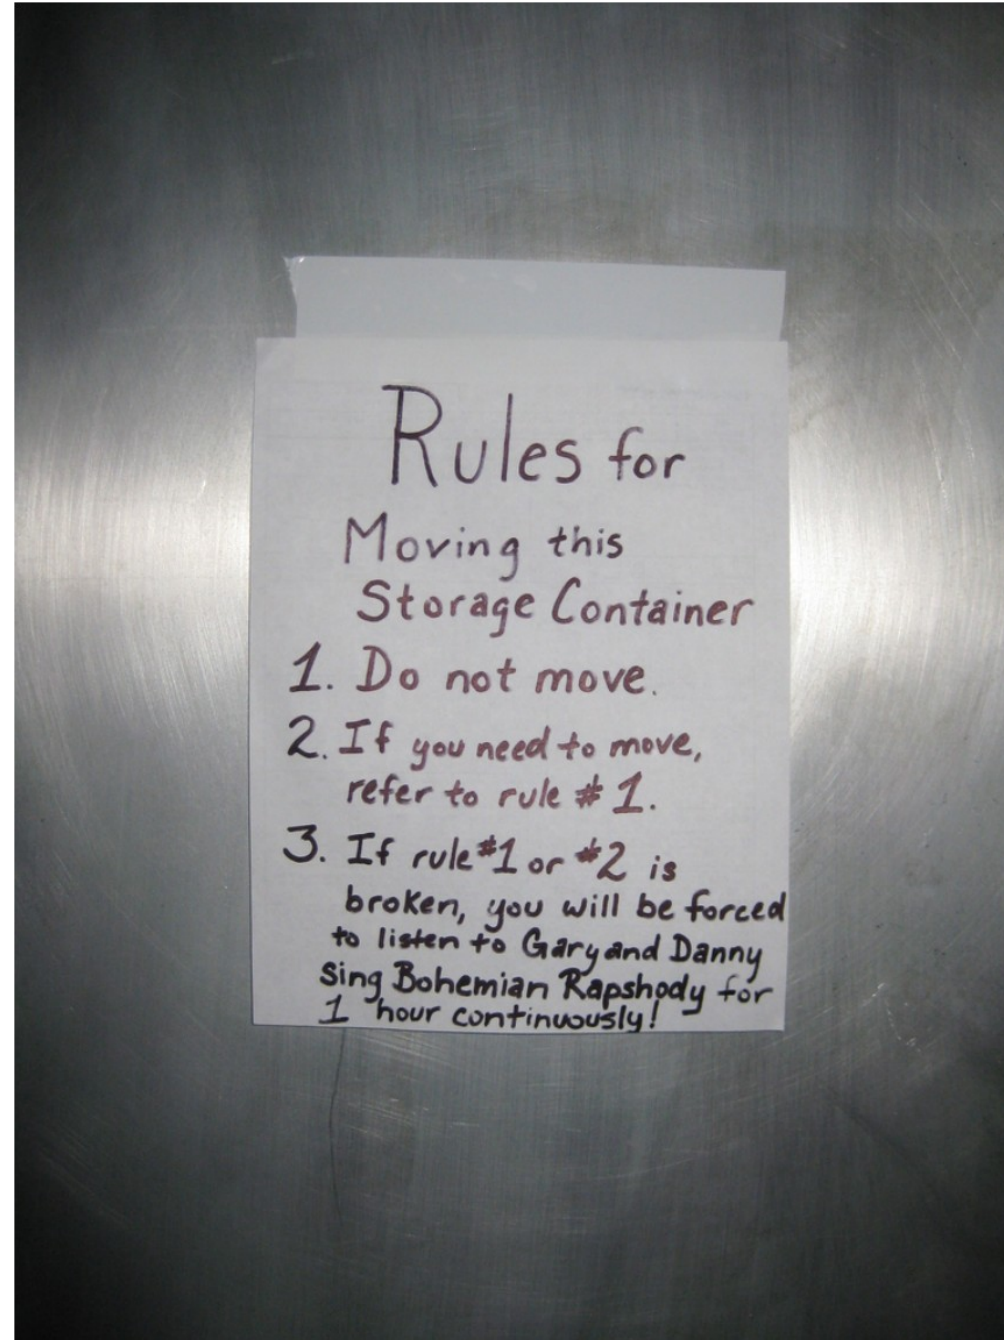 Rules for
Moving this
Storage Container
1. Do not move.
2. If you need to move,
refer to rule #1.
3. If rule #1 or #2 is
broken, you will be forced
to listen to Gary and Danny
sing Bohemian Rapshody for
1 hour continuously!